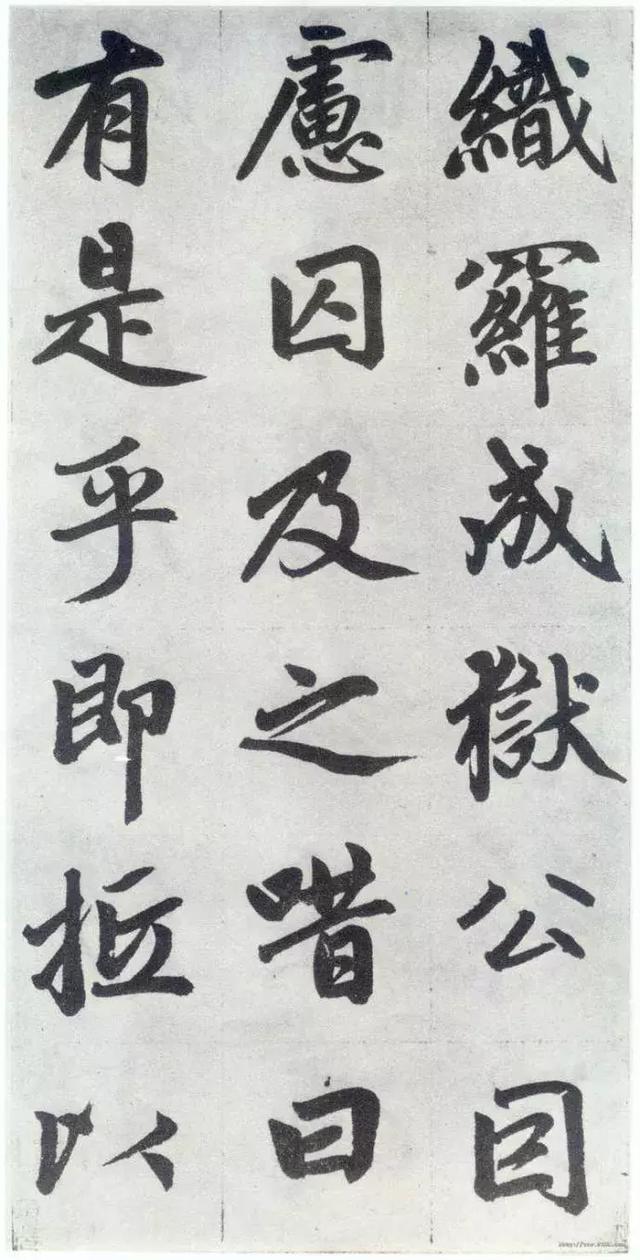 織羅成獄公因
慮囚及之唶曰
有是乎即抵以